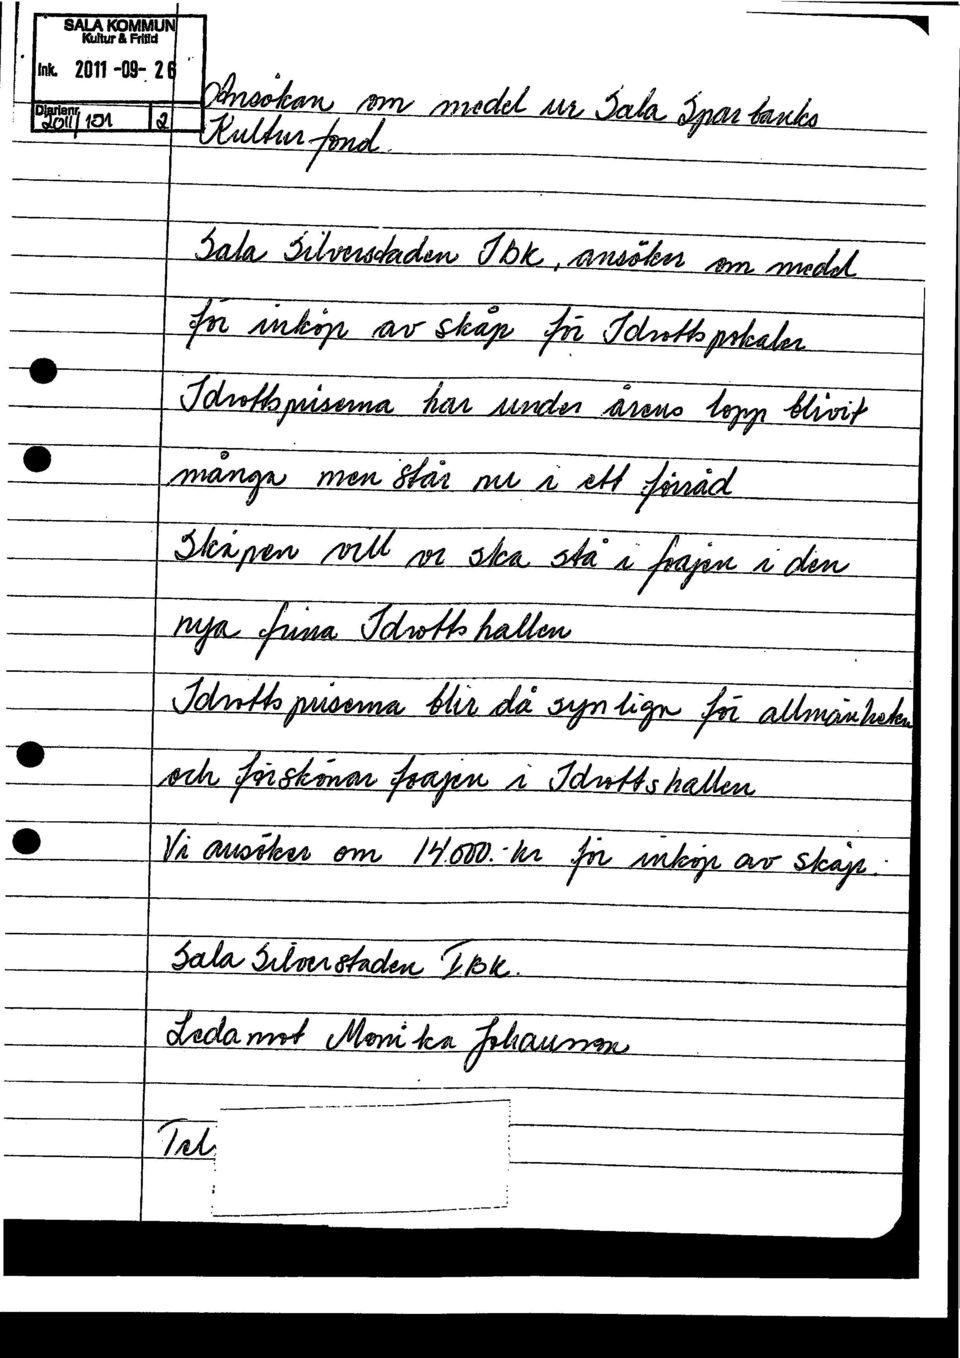 SALA KOMMUN
Kultur & Fritid
Ink. 2011-09-26
Diarienr
2011/101 2
Ansökan om medel ur Sala Sparbanks
Kulturfond.
Sala Silverstaden IBK, ansöker om medel
för inköp av skåp för Idrottspokaler
Idrottspriserna har under årens lopp blivit
många men står nu i ett förråd
Skåpen vill vi ska stå i foajen i den
nya fina Idrottshallen
Idrottspriserna blir då synliga för allmänheten
och förskönar foajen i Idrottshallen
Vi ansöker om 14.000.-kr för inköp av skåp.
Sala Silverstaden IBK.
Ledamot Monika Johansson
Tel